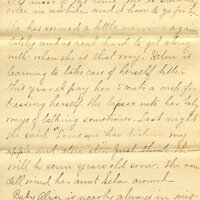 once in awhile and I han to go for h
She has seemed a little nervous again
lately and is real hard to get along
with when she is that way. Helen is
learning to take care of herself better
this year. I pay her 5 cents a week for
dressing herself. She lapses into her baby
ways of talking sometimes. Last night
she said
apple and ate it". Just think she
will be seven years old soon. She can
still wind her aunt Lela around.
Baby Alice is nearly always in mis